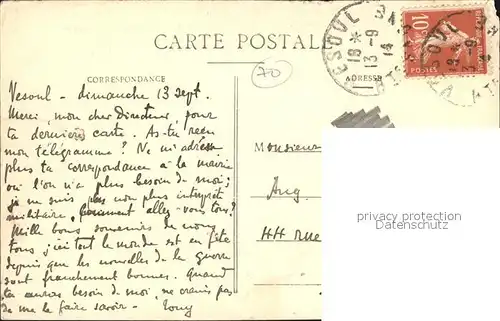 CARTE POSTALE
CORRESPONDANCE
70
ADRESSE
VESOUL
18 * 13-9 14
10
POSTES
Vesoul - dimanche 13 sept.
Merci, mon cher Directeur, pour
ta dernière carte. As-tu reçu
mon télégramme? Ne m'adresse
plus ta correspondance à la mairie
où l'on n'a plus besoin de moi;
je ne suis pas non plus interprète
militaire. Comment allez-vous tous?
Mille bons souvenirs de nous
tous; ici tout le monde est en fête
depuis que les nouvelles de la guerre
sont franchement bonnes. Quand
tu auras besoin de moi, ne crains pas
de me le faire savoir - Tony
Monsieur
Aug
HH rue
privacy protection
Datenschutz